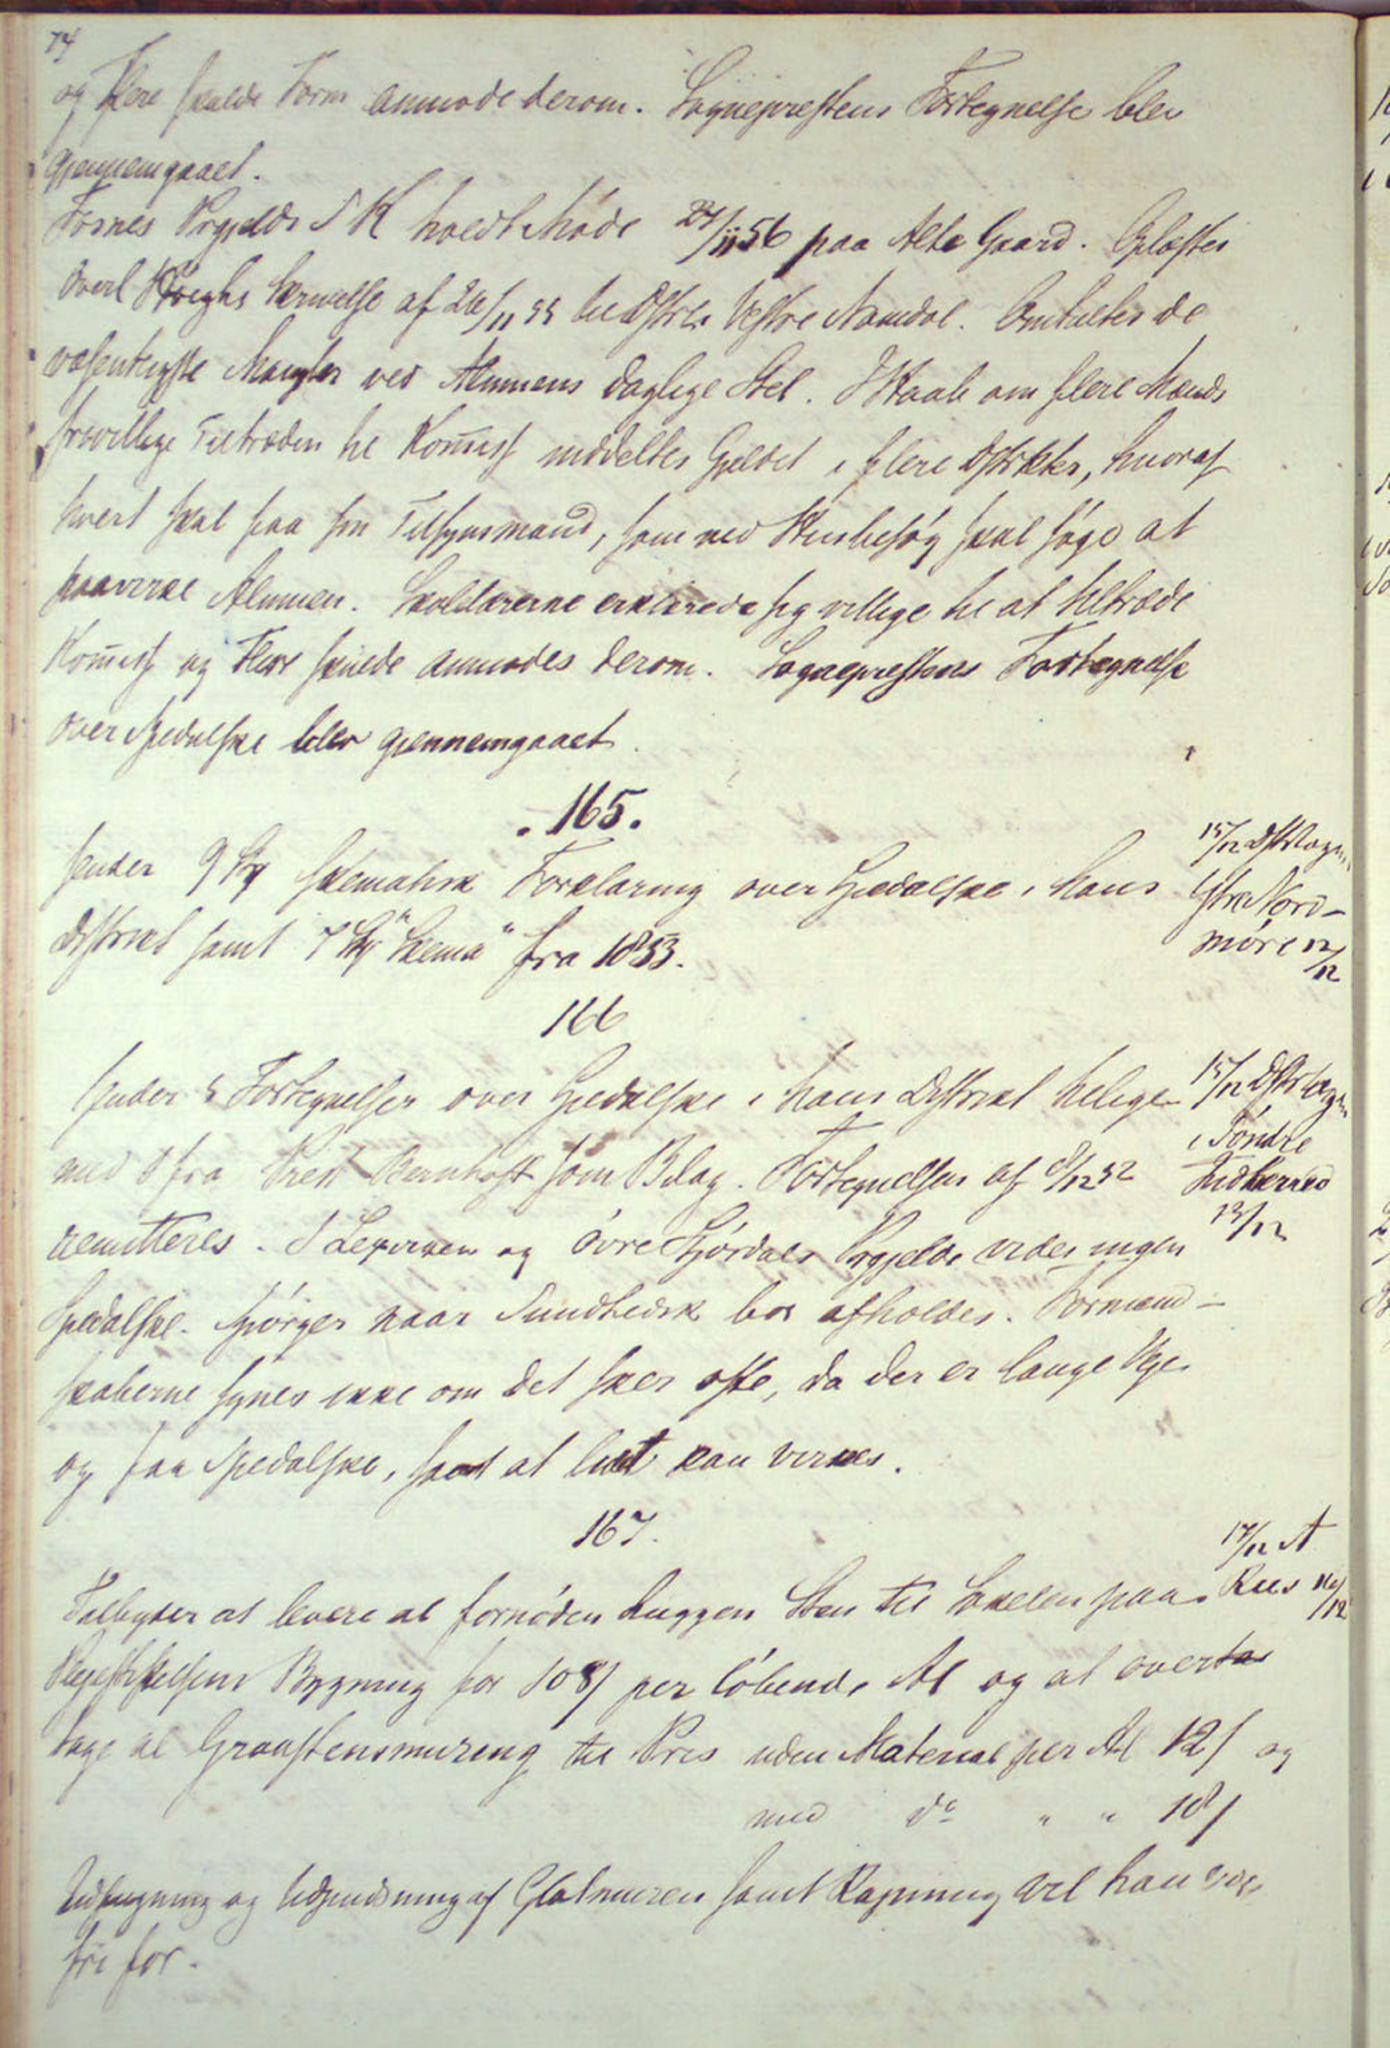 74
og Flere skulde Form anmode derom. Sogneprestens Fortegnelse blev
gjennemgaaet.
Fosnes Prgjelds S K holdt Møde 27/11 56 paa Alte Gaard. Oplæstes
Overl Høeghs Skrivelse af 26/11 55 til Dstrl i Vestre Namdal. Omtaltes de
væsentligste Mangler ved Almuens daglige Stel. I Haab om flere Mænds
frivillige Tiltræden til Komiss inddeltes Gjeldet i flere Distrikter, hvoraf
hvert skal faa sin Tilsynsmand, som ved Husbesøg skal søge at
paavirke Almuen. Skolelærerne erklærede sig villige til at tiltræde
Komiss og Flere skulde anmodes derom. Sogneprestens Fortegnelse
over Spedalske blev gjennemgaaet.
. 165.
Sender 9 Stk skematisk Forklaring over Spedalske i hans
Distrikt samt 7 Stk "Skema" fra 1853.
15/12 Dstrlæge
Ytre Nord-
møre 12/12
166
Sender Fortegnelser over Spedalske i hans Distrikt tillige
med fra Prest Bernhoft som Bilag. Fortegnelsen af 9/12 52
remitteres. I Lexviken og øvre Stjørdals Prgjelde vides ingen
Spedalske. Spørger naar Sundhedsk bør afholdes. Formænd-
skaberne synes ikke om det sker ofte, da der er lange Veje
og faa Spedalske, saa at lidet kan virkes.
15/12 Dstrlæge
i Søndre
Indherred
13/12
167.
Tilbyder at levere al fornøden huggen Sten til Sokkelen paa
Plejestiftelsens Bygning for 108 s per løbende Al og at over
tage al Graastensmuring til Pris uden Material per Al 12 s og
med do " " 18 s
Udhugning og Udpudsning af Glatmuren samt Rapning vil han være
fri for.
17/12 A
Rees 16/12